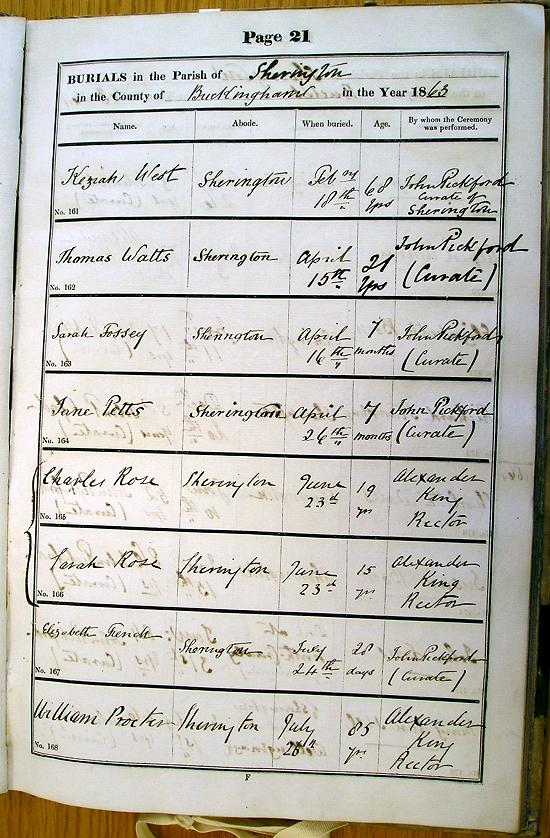 Page 21
BURIALS in the Parish of Sherington
in the County of Buckingham in the Year 1863
Name. Abode. When buried. Age. By whom the Ceremony was performed.
Keziah West Sherington Feb ry 18th 68 yrs John Pickford Curate of Sherington
No. 161
Thomas Watts Sherington April 15th 21 yrs John Pickford (Curate)
No. 162
Sarah Fossey Sherington April 16th 7 months John Pickford (Curate)
No. 163
Jane Petts Sherington April 26th 7 months John Pickford (Curate)
No. 164
Charles Rose Sherington June 23d 19 yrs Alexander King Rector
No. 165
Sarah Rose Sherington June 23d 15 yrs Alexander King Rector
No. 166
Elizabeth French Sherington July 24th 28 days John Pickford (Curate)
No. 167
William Procter Sherington July 28th 85 yrs Alexander King Rector
No. 168
F